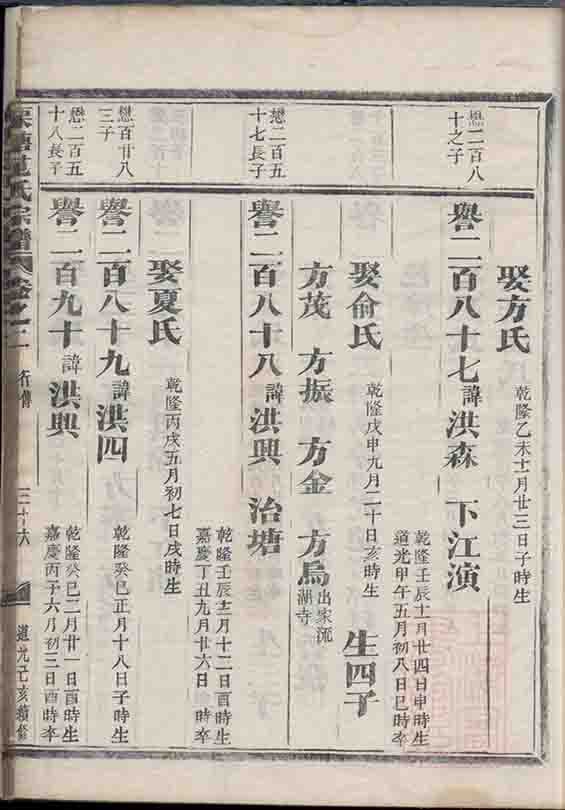 娶方氏
乾隆乙未十一月廿三日子時生
懋二百八十之子
譽二百八十七諱洪森 下江演
乾隆壬辰十一月廿四日申時生
道光甲午五月初八日巳時卒
娶俞氏
乾隆戊申九月二十日亥時生
生四子
方茂 方振 方金 方烏
出家流湖寺
懋二百五十七長子
譽二百八十八諱洪興 治塘
乾隆壬辰十二月十二日酉時生
嘉慶丁丑九月廿六日 時卒
娶夏氏
乾隆丙戌五月初七日戌時生
懋百廿八三子
譽二百八十九諱洪四
乾隆癸巳正月十八日子時生
懋二百五十八長子
譽二百九十諱洪興
乾隆癸巳二月廿一日酉時生
嘉慶丙子六月初三日酉時卒
范氏宗譜
卷之二
行傳
三十六
道光己亥續修